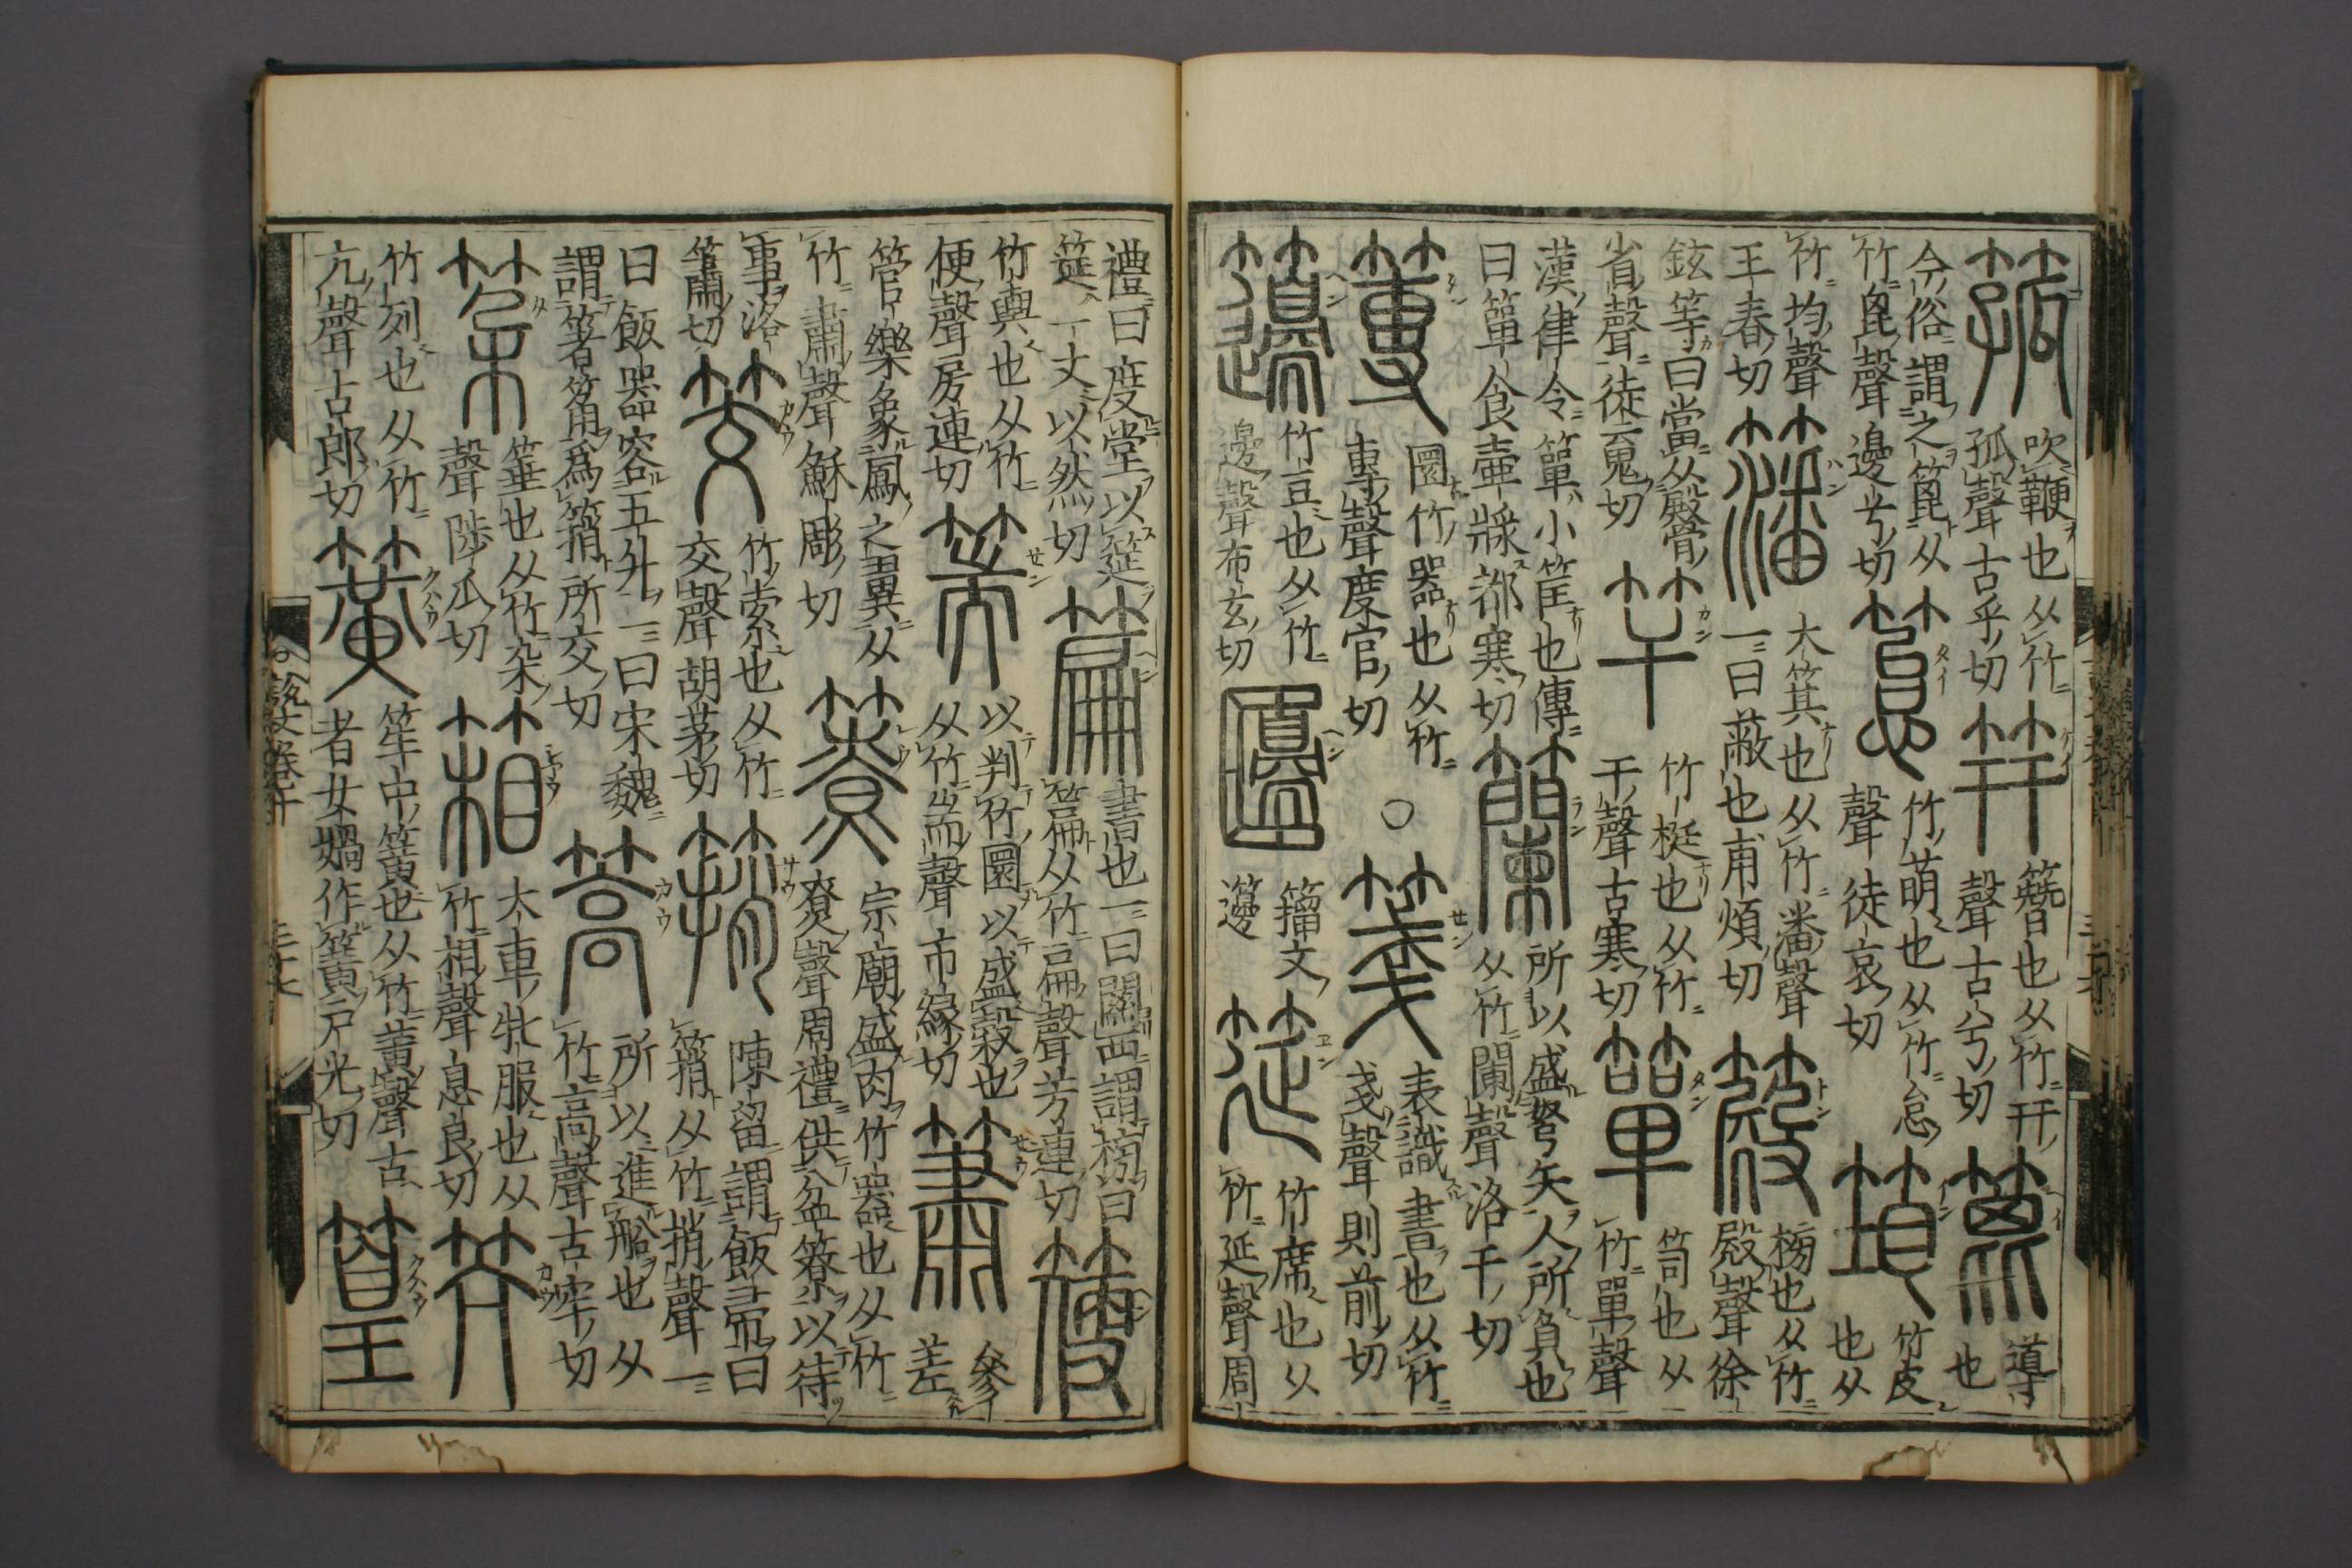 箛吹鞭也从竹孤聲古乎切筓簪也从竹幵聲古兮切篦導也
今俗謂之篦从竹𣬉聲邊兮切䈚竹萌也从竹怠聲徒哀切筠竹皮也从
竹均聲王春切籓大箕也从竹潘聲一曰蔽也甫煩切𥴫榜也从竹殿聲徐
鉉等曰當从臋省聲徒䰟切竿竹梃也从竹干聲古寒切簞笥也从竹單聲
漢律令簞小筐也傳曰簞食壺漿都寒切籣所以盛弩矢人所負也从竹闌聲洛干切
篿圜竹器也从竹專聲度官切○箋表識書也从竹戔聲則前切
籩竹豆也从竹邊聲布玄切𠥱籀文籩筵竹席也从竹延聲周
禮曰度堂以筵筵一丈以然切篇書也一曰關西謂榜曰篇从竹扁聲芳連切箯
竹輿也从竹便聲房連切篅以判竹圜以盛穀也从竹耑聲市緣切簫參差
管樂象鳳之翼从竹肅聲穌彫切簝宗廟盛肉竹器也从竹尞聲周禮供盆簝以待
事洛簫切筊竹索也从竹交聲胡茅切䈰陳留謂飯帚曰䈰从竹捎聲一
曰飯器容五升一曰宋魏謂箸筩爲䈰所交切篙所以進船也从竹高聲古牢切
築箠也从竹朵聲陟瓜切箱大車牝服也从竹相聲息良切笐
竹列也从竹亢聲古郎切簧笙中簧也从竹黃聲古者女媧作簧戶光切篁
說文卷十 三十七